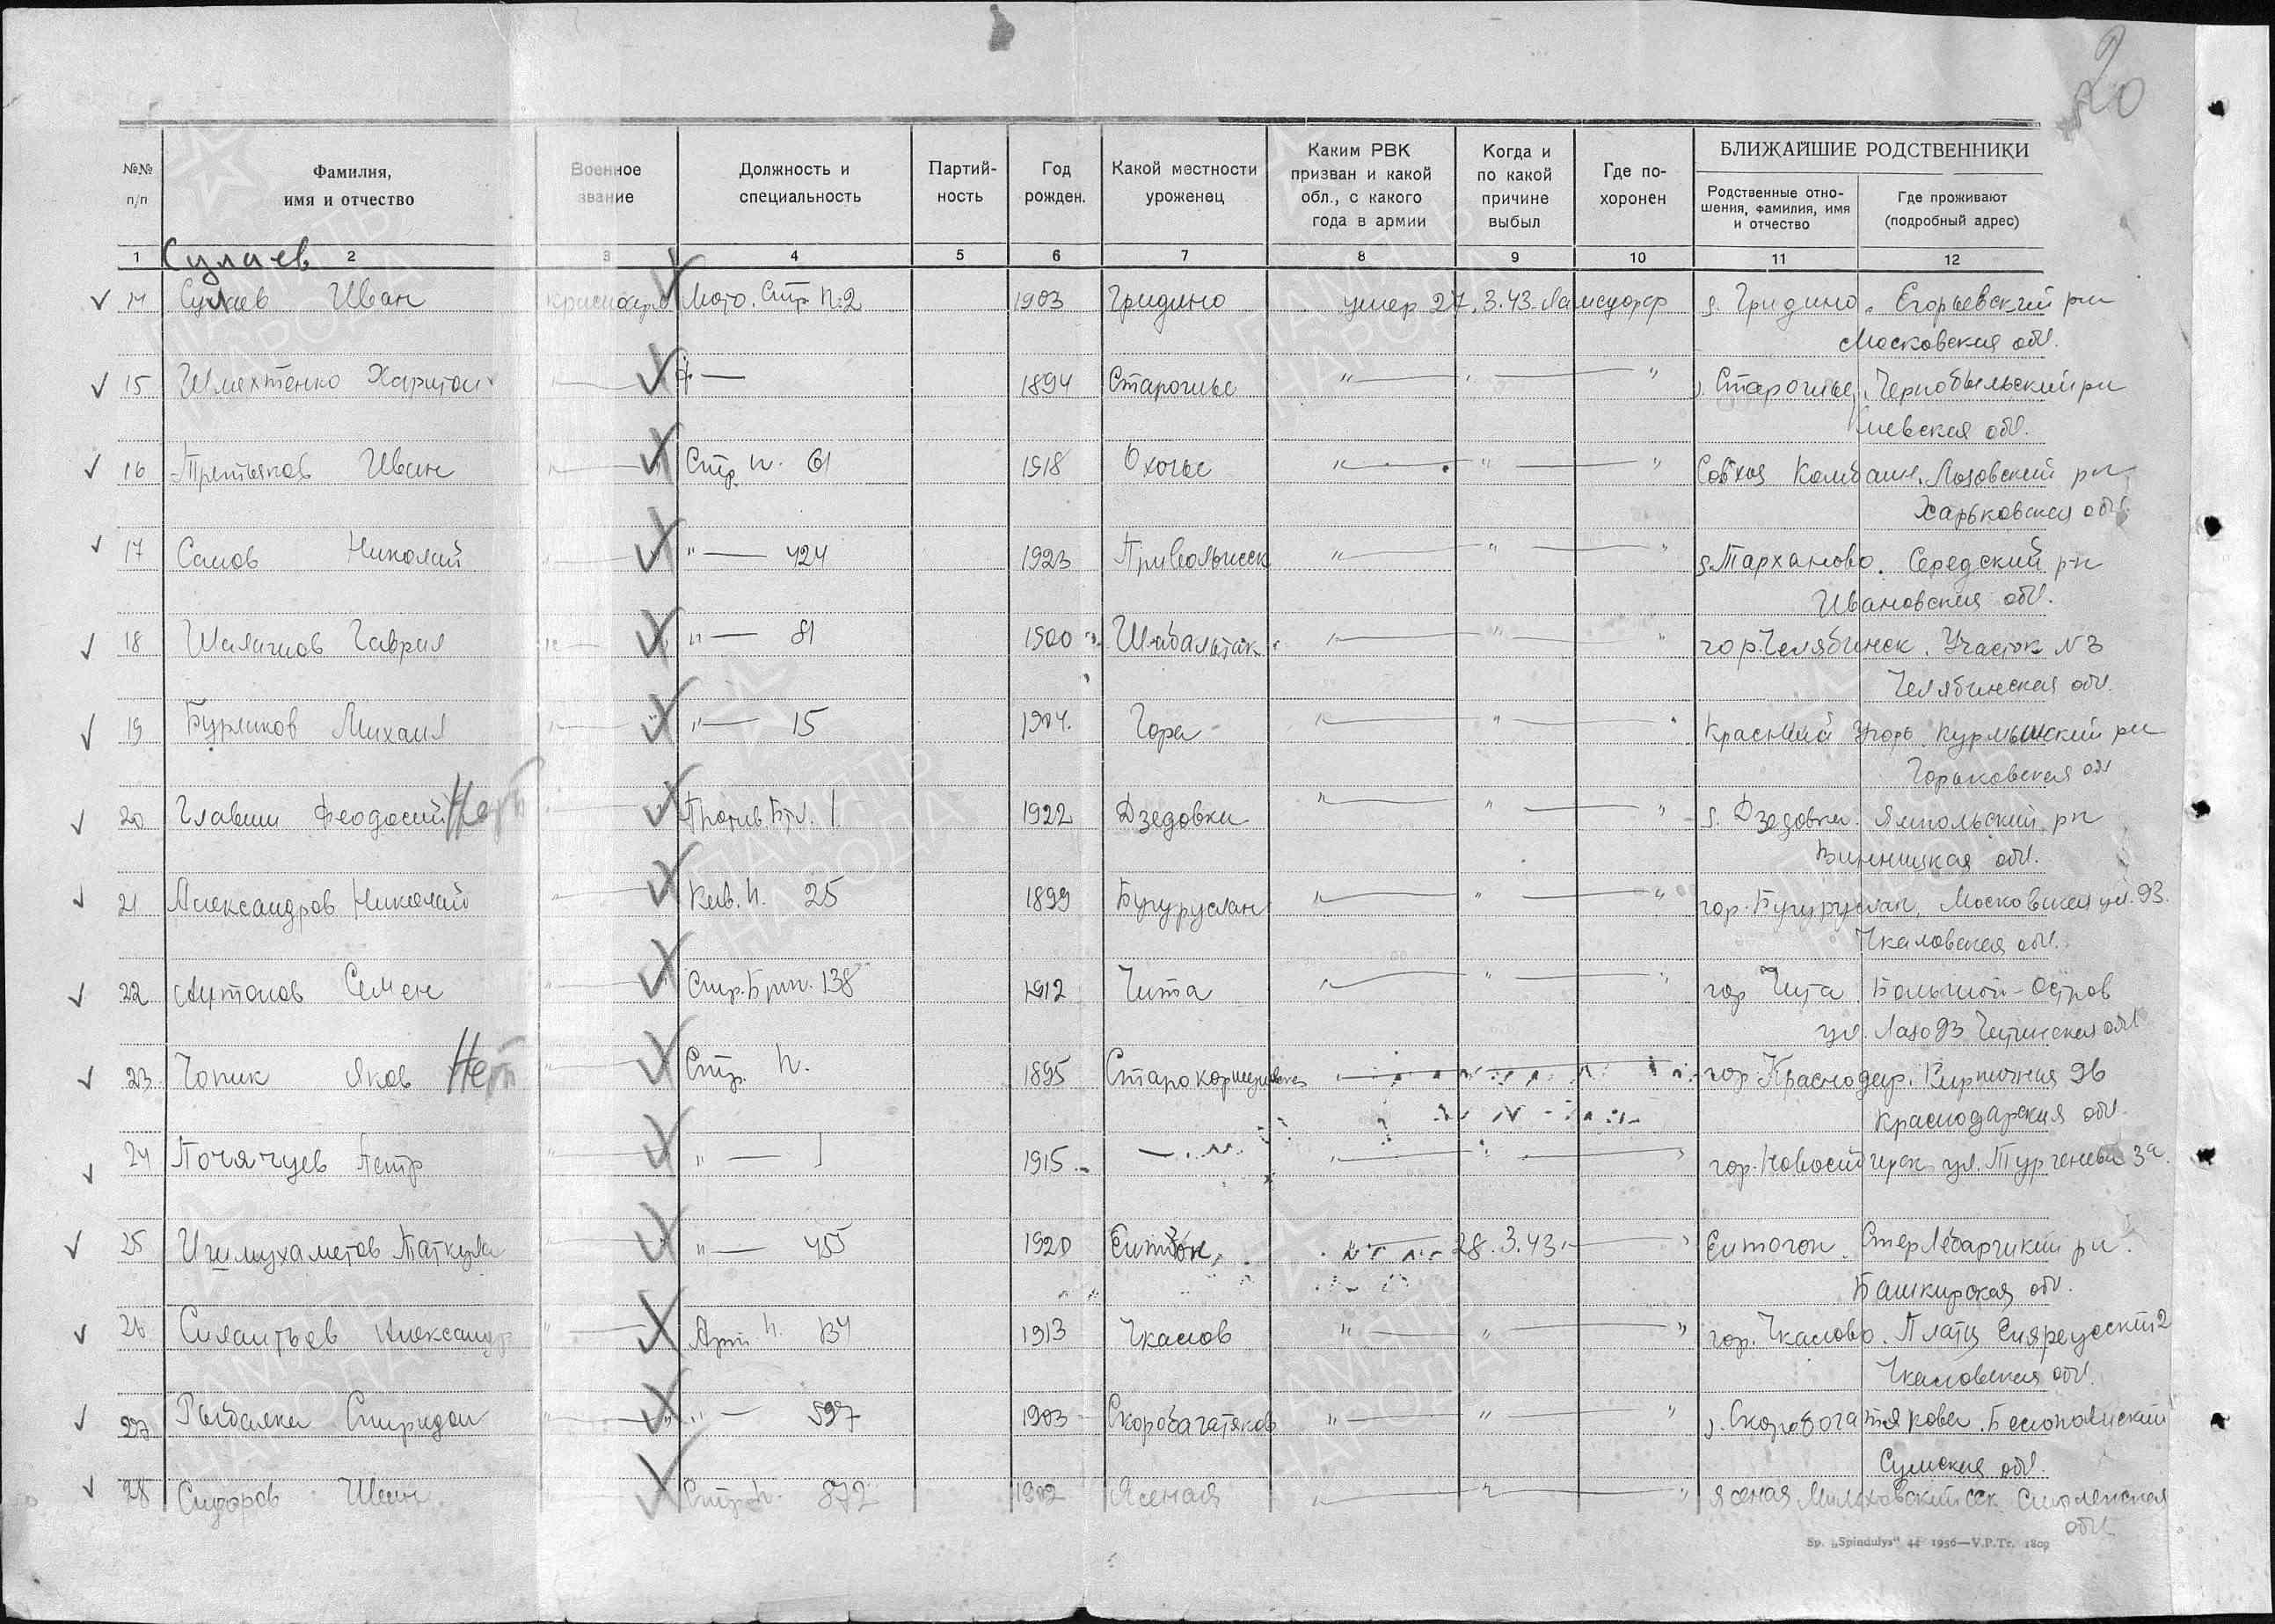 20
№№ п/п
Фамилия, имя и отчество
Военное звание
Должность и специальность
Партий-ность
Год рожден.
Какой местности уроженец
Каким РВК призван и какой обл., с какого года в армии
Когда и по какой причине выбыл
Где по-хоронен
БЛИЖАЙШИЕ РОДСТВЕННИКИ
Родственные отно-шения, фамилия, имя и отчество
Где проживают (подробный адрес)
1 2 3 4 5 6 7 8 9 10 11 12
Сулаев
14 Сулаев Иван Красноарм Мото. Стр. п. 2 1903 Гридино умер 27.3.43. Ламсдорф д. Гридино. Егорьевский рн
Московская обл.
15 Шмехтенко Харитон " — 1894 Старогилье " " " Чернобыльский рн
Киевская обл.
16 Третьяков Иван " Стр. п. 61 1918 Охочье " " " Совхоз Комбайн. Лозовский рн
Харьковская обл.
17 Сомов Николай " — 424 1923 " " " д. Тарханово. Середский р-н
Ивановская обл.
18 Гаврил " " — 81 1900 " " " гор. Челябинск. Участок N 3
Челябинская обл.
19 Бурлиов Михаил " " — 15 1904. Гора " " Красный Курмышский рн
Горьковская обл
20 Главин Феодосий Нет " Против. Бтл. 1. 1922 Дзедовки " " " д. Дзедовки. Ямпольский рн
Винницкая обл.
21 Александров Николай " Кав. п. 25 1899 Бугуруслан " " " гор. Бугуруслан, Московская ул. 93.
Чкаловская обл.
22 Антонов Семен " Стр. Бриг. 138 1912 Чита " " " гор Чита Большой-Остров
ул. Лазо 93 Читинская обл
23. Чопик Яков Нет " Стр. п. 1895 гор. Краснодар. Кирпичная 96
Краснодарская обл.
24 Почячуев Петр " " — 1915 " " " гор. Новосибирск ул. Тургенева 3а.
25 Ишмухаметов Таткула " " — 455 1920 28.3.43. " Ситогон. рн.
Башкирская обл.
26 Силантьев Александр " Арт п. 134 1913 Чкалов " " " гор. Чкалово. Платц 2
Чкаловская обл.
27 Рыбалка Спиридон " " — 597 1903 Скоробагатяков " " "
Сумская обл.
28 Сидоров Иван Стр. п. 872 1902 Ясеная " " " Ясеная Смоленская
обл.
Sp. „Spindulys“ 44 1956—V.P.Tr. 1809
ПАМЯТЬ НАРОДА